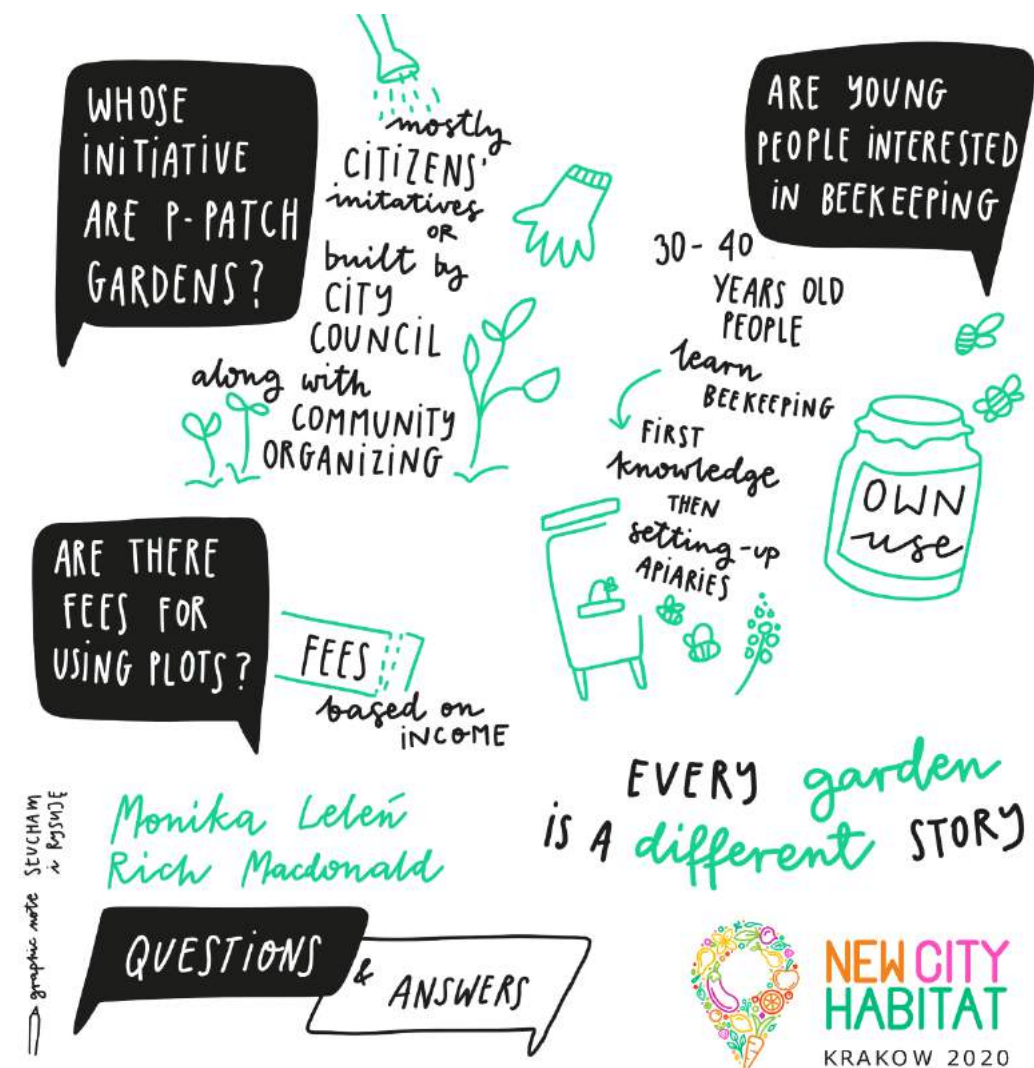 WHOSE
INITIATIVE
ARE P-PATCH
GARDENS?
mostly
CITIZENS'
initatives
OR
built by
CITY
COUNCIL
along with
COMMUNITY
ORGANIZING
ARE YOUNG
PEOPLE INTERESTED
IN BEEKEEPING
30-40
YEARS OLD
PEOPLE
learn
BEEKEEPING
FIRST
knowledge
THEN
setting-up
APIARIES
OWN
use
ARE THERE
FEES FOR
USING PLOTS?
FEES
based on
INCOME
Monika Leleń
Rich Macdonald
EVERY garden
IS A different STORY
graphic note SŁUCHAM
i RYSUJE
QUESTIONS
&
ANSWERS
NEW CITY
HABITAT
KRAKOW 2020